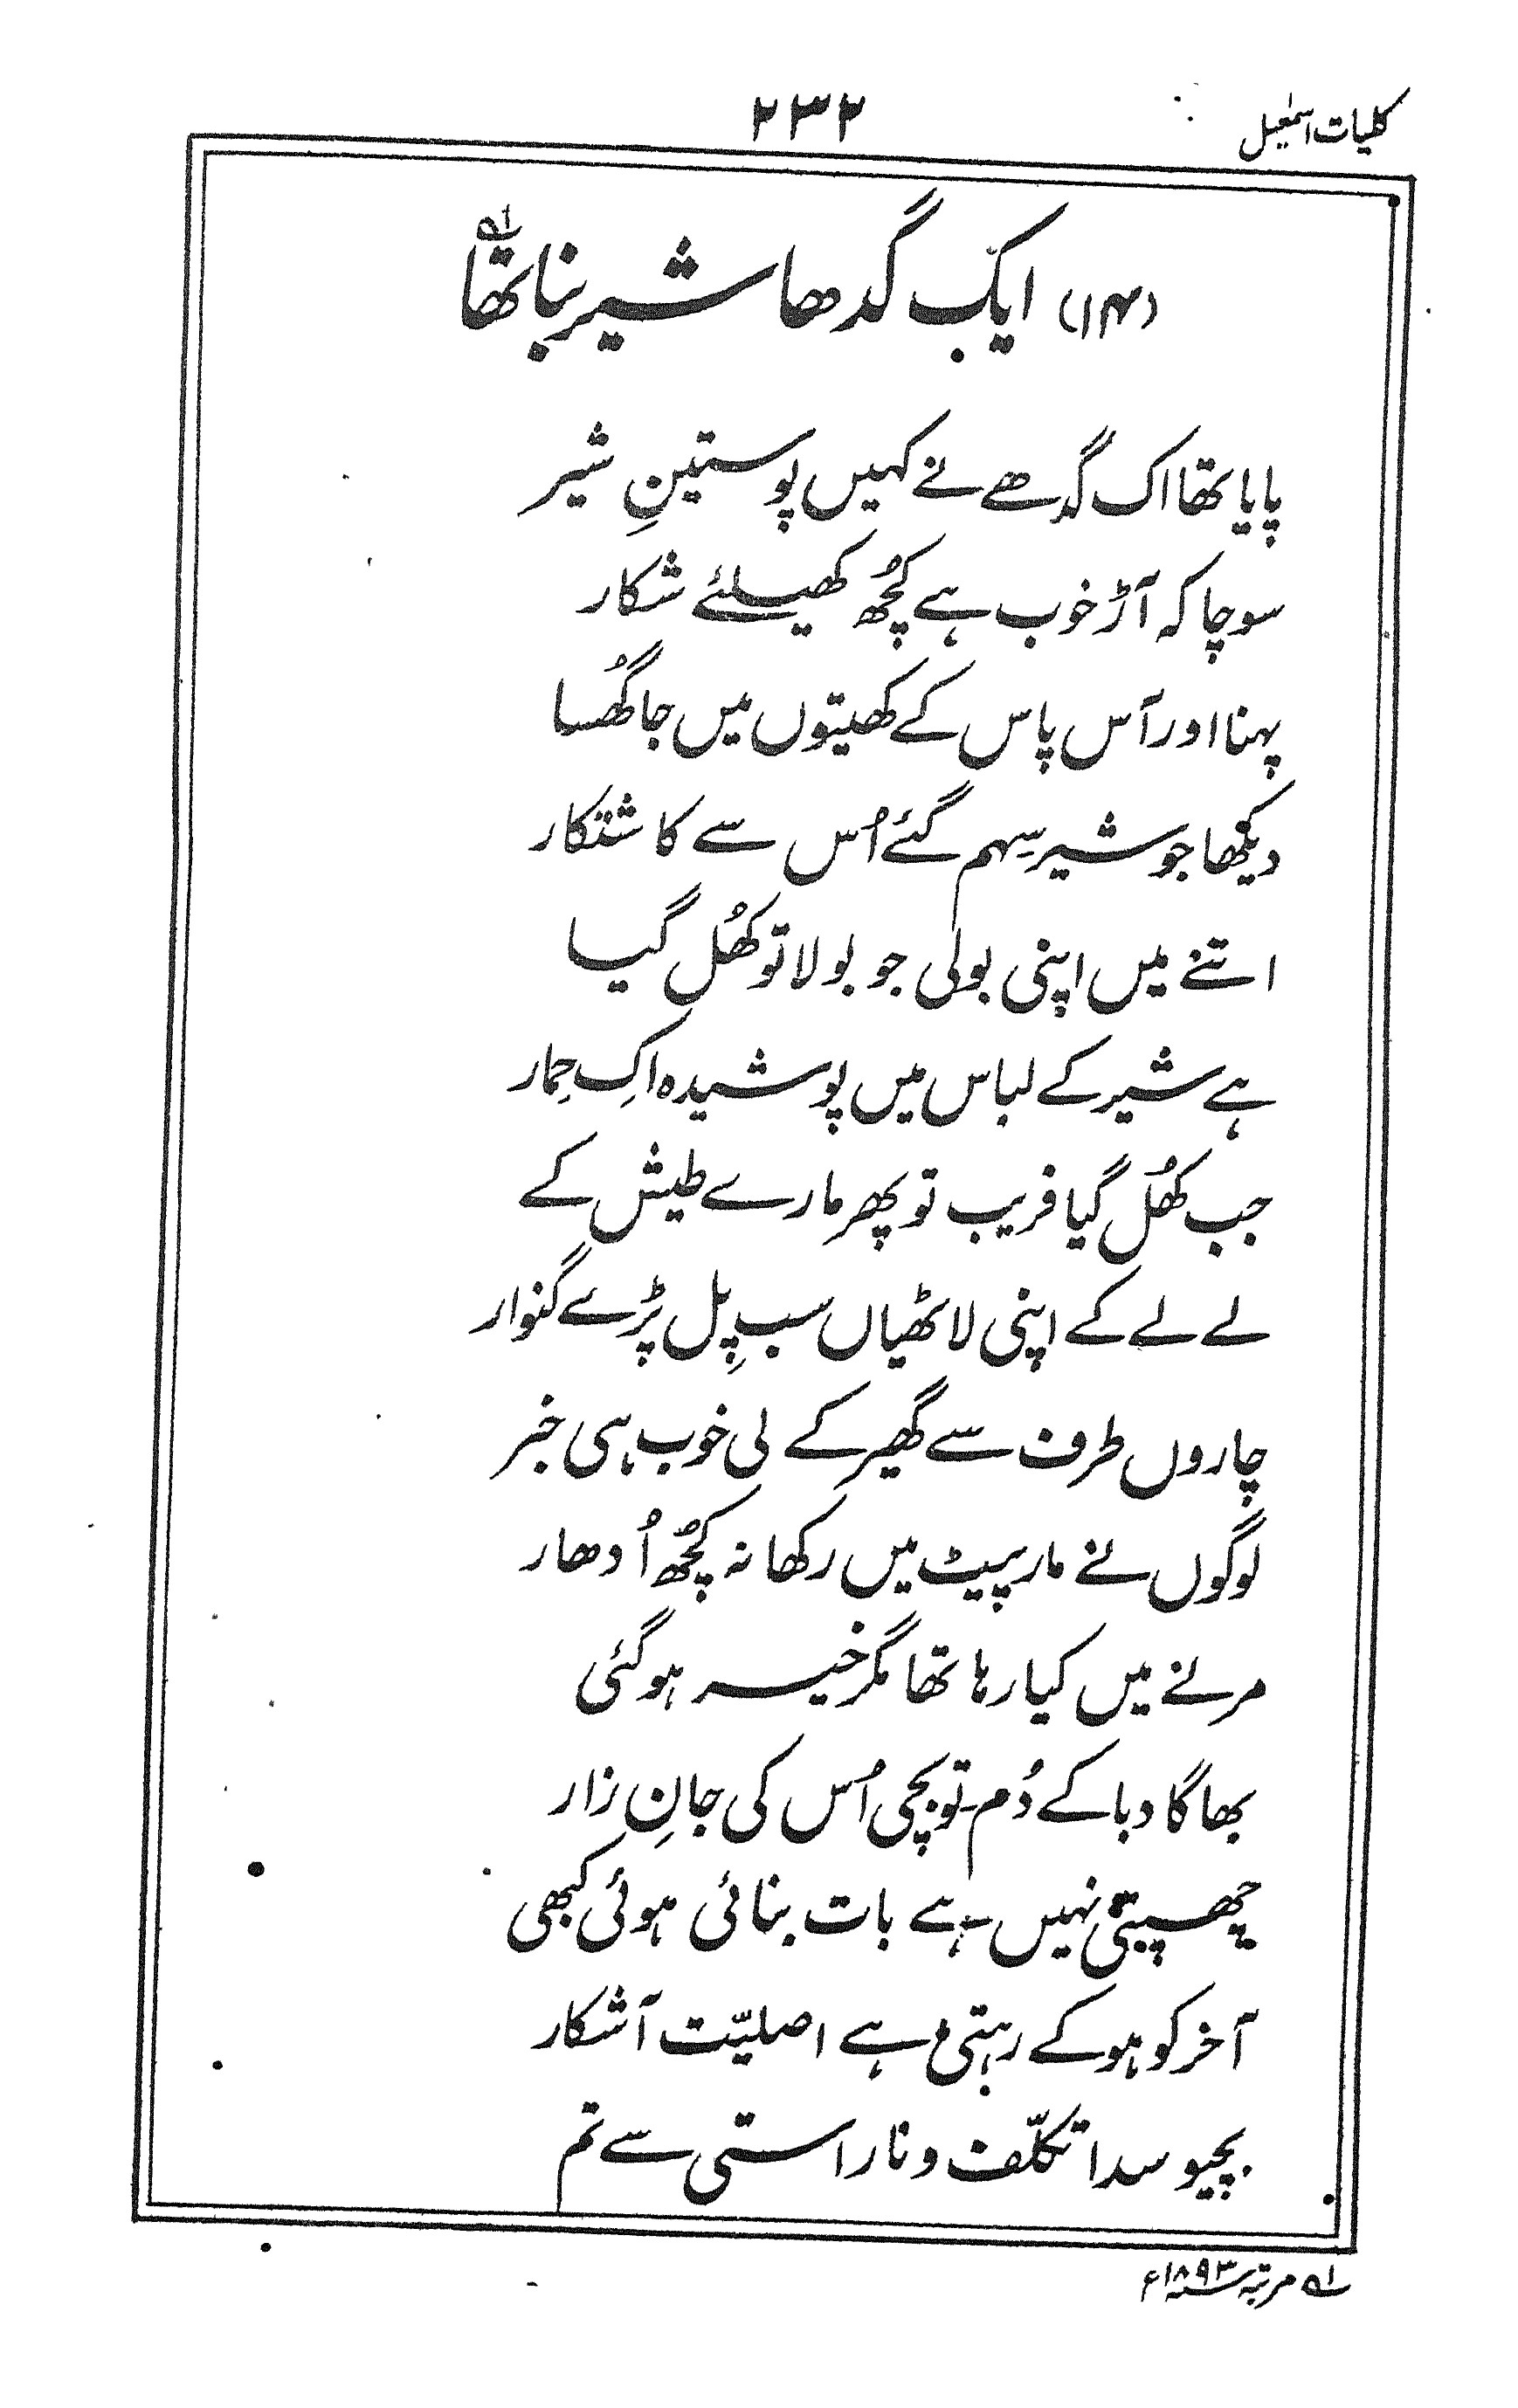 کلیات اسمٰعیل
۲۳۲
(۱۴) ایک گدھا شیر بنا تھا ؎۱
پایا تھا اک گدھے نے کہیں پوستینِ شیر
سوچا کہ آڑ خوب ہے کچُھ کھیلئے شکار
پہنا اور آس پاس کے کھیتوں میں جا گھُسا
دیکھا جو شیر سہم گئے اُس سے کاشتکار
اتنے میں اپنی بولی جو بولا تو کھُل گیا
ہے شیر کے لباس میں پوشیدہ اکِ حِمار
جب کھُل گیا فریب تو پھر مارے طیش کے
لے لے کے اپنی لاٹھیاں سب پِل پڑے گنوار
چاروں طرف سے گھیر کے لی خوب ہی خبر
لوگوں نے مار پیٹ میں رکھا نہ کچُھ اُدھار
مرنے میں کیا رہا تھا مگر خیر ہو گئی
بھاگا دبا کے دُم۔ تو بچی اُس کی جانِ زار
چھپتی نہیں ہے بات بنائی ہوئی کبھی
آخر کو ہو کے رہتی ہے اصلیّت آشکار
بچیو سدا تکلّف و ناراستی سے تم
؎۱ مرتبہ سنہ ۱۸۹۳ء